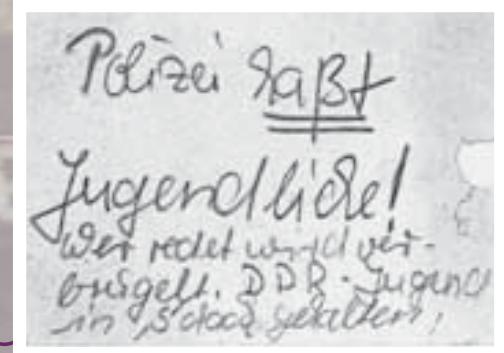 Polizei haßt
Jugendliche!
Wer redet wird ver-
prügelt. DDR-Jugend
in Schach gehalten,